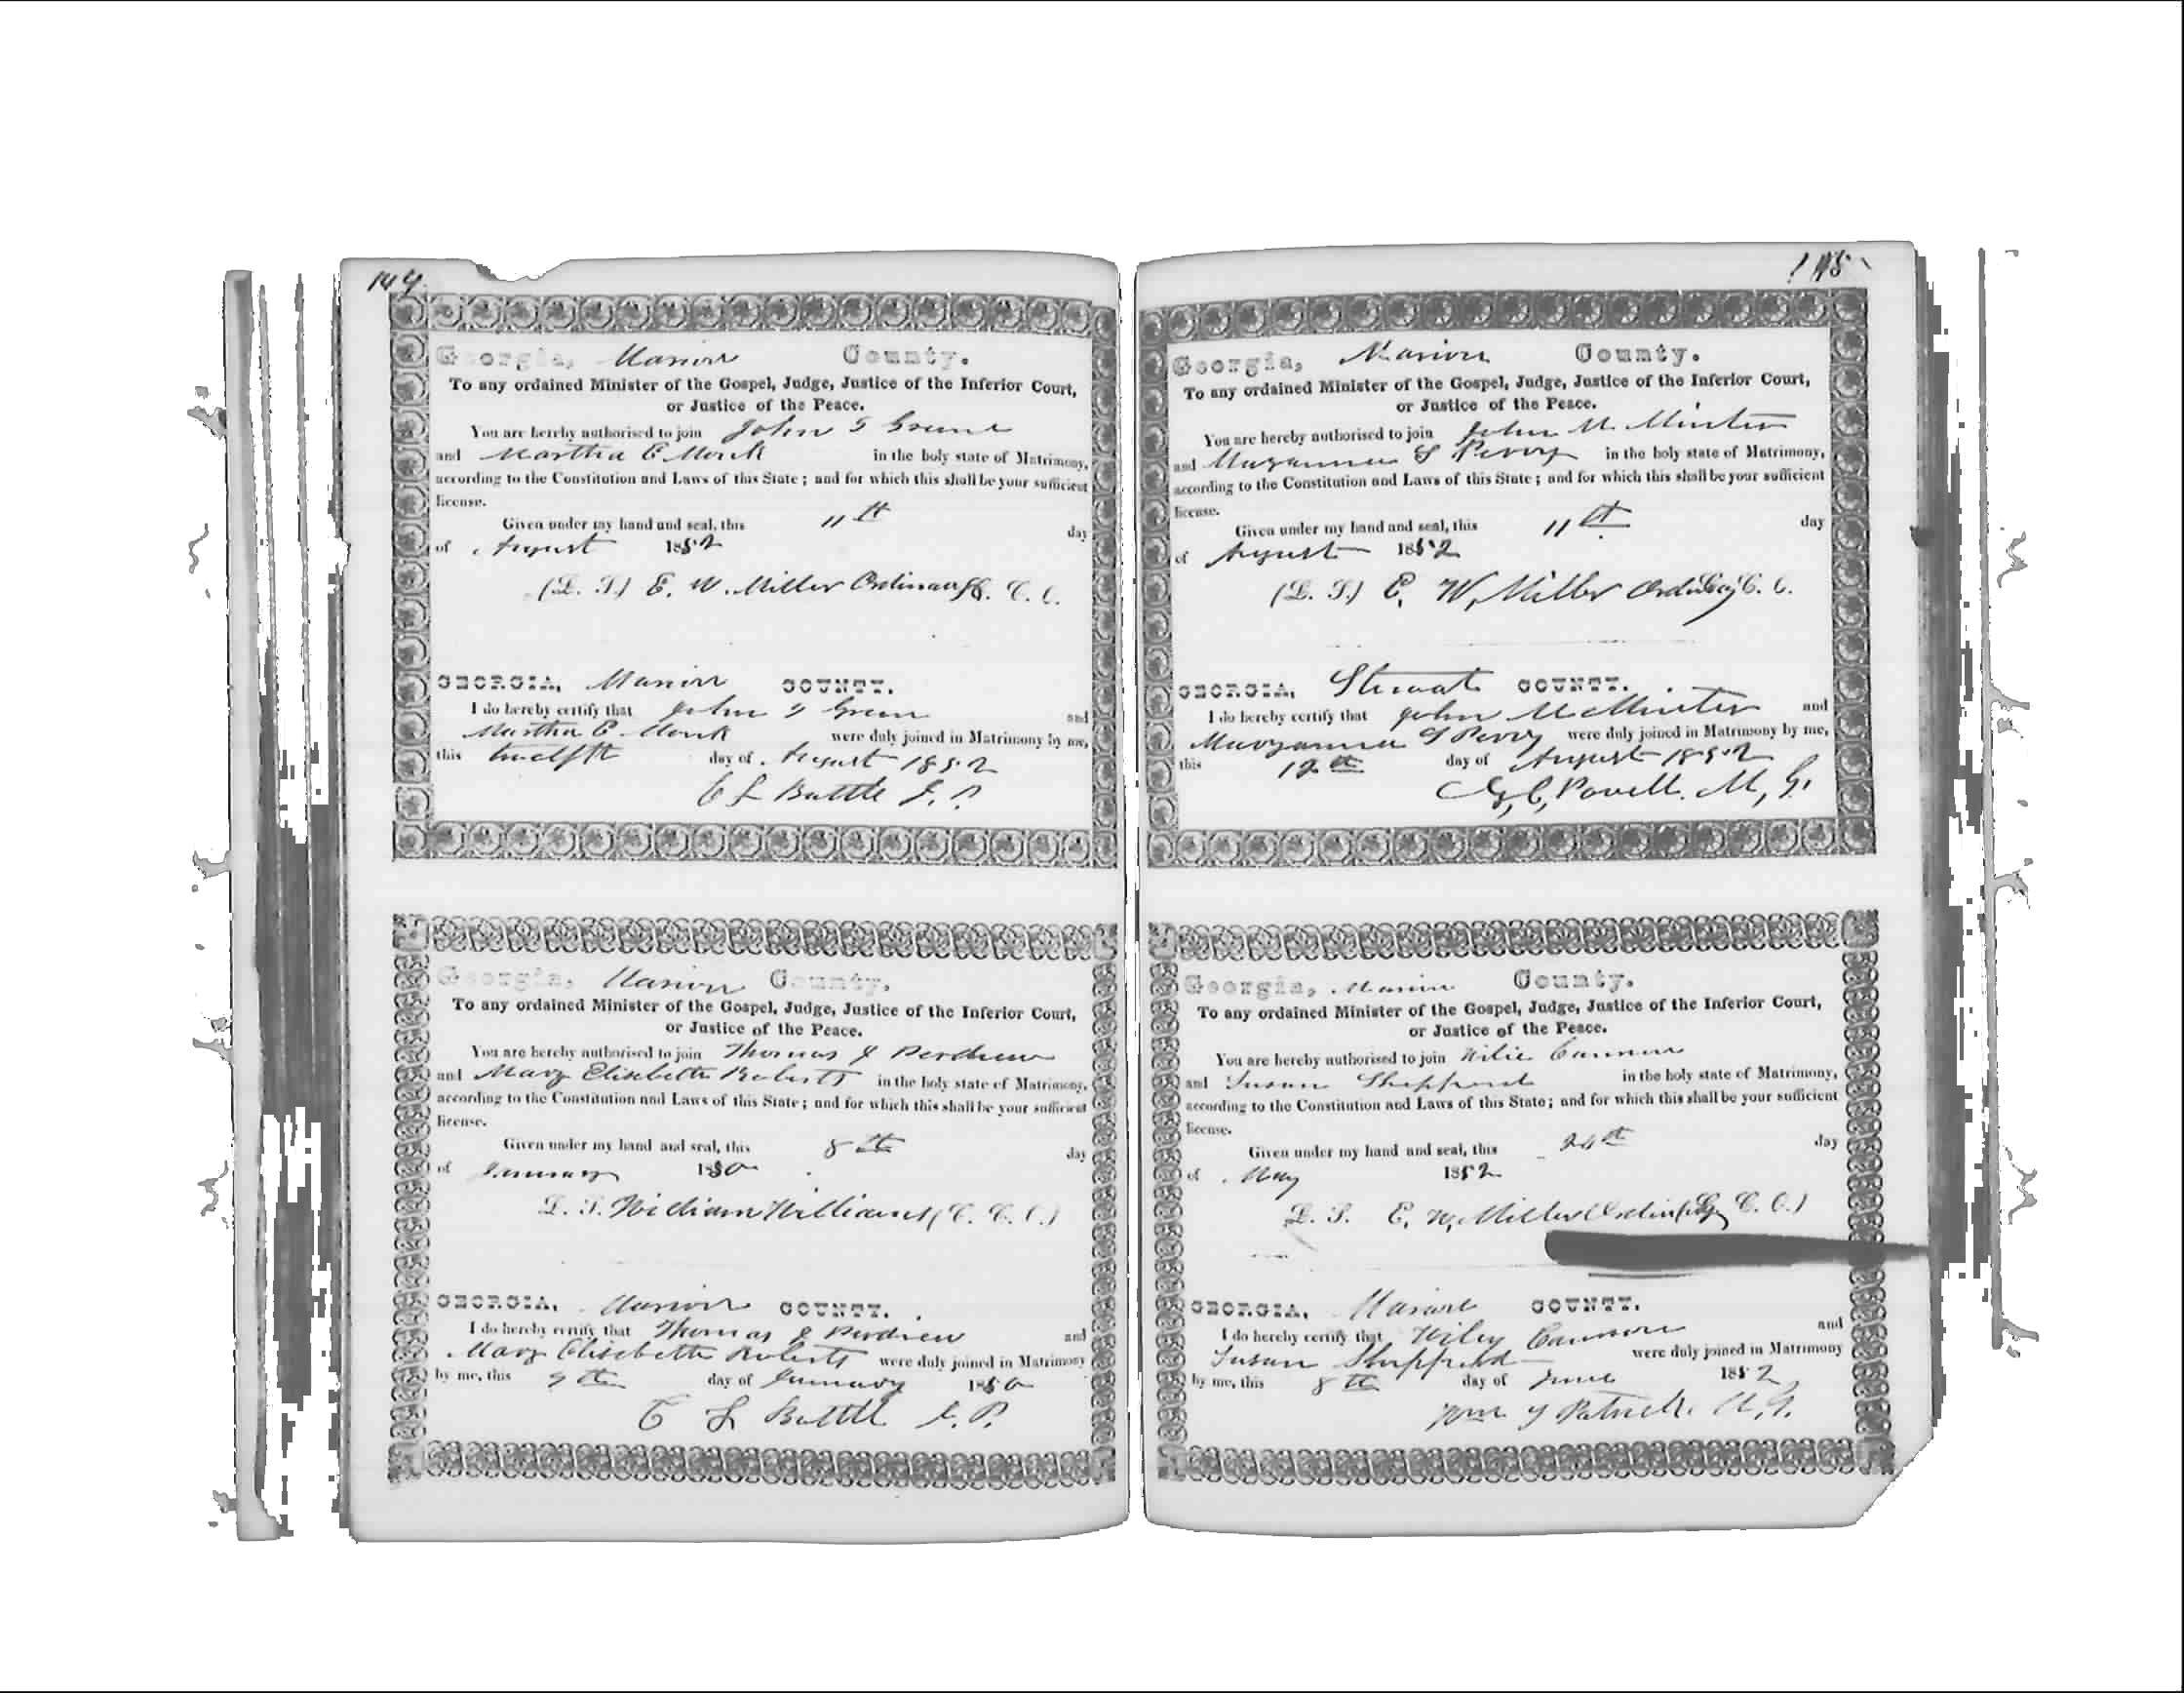 144
Georgia, Marion County.
To any ordained Minister of the Gospel, Judge, Justice of the Inferior Court,
or Justice of the Peace.
You are hereby authorised to join John
and Martha E Monk in the holy state of Matrimony,
according to the Constitution and Laws of this State; and for which this shall be your sufficient
license.
Given under my hand and seal, this 11th day
of August 1852
(L. S.) E. W. Miller Ordinary C. C.
GEORGIA, Marion COUNTY.
I do hereby certify that John Green and
Martha E. Monk were duly joined in Matrimony by me,
this twelfth day of August 1852
C L Battle J. P.
Georgia, Marion County.
To any ordained Minister of the Gospel, Judge, Justice of the Inferior Court,
or Justice of the Peace.
You are hereby authorised to join Thomas J Perdieu
and Mary Elisebeth Roberts in the holy state of Matrimony,
according to the Constitution and Laws of this State; and for which this shall be your sufficient
license.
Given under my hand and seal, this 8th day
of January 1850
L. S. William Williams (C. C. O.)
GEORGIA, Marion COUNTY.
I do hereby certify that Thomas J Perdieu and
Mary Elisebeth Roberts were duly joined in Matrimony
by me, this 9th day of January 1850
C L Battle J. P.
145
Georgia, Marion County.
To any ordained Minister of the Gospel, Judge, Justice of the Inferior Court,
or Justice of the Peace.
You are hereby authorised to join John M. Minter
and S Perry in the holy state of Matrimony,
according to the Constitution and Laws of this State; and for which this shall be your sufficient
license.
Given under my hand and seal, this 11th day
of August 1852
(L. S.) E. W, Miller C. C.
GEORGIA, Stewart COUNTY.
I do hereby certify that John M Minter and
Maryanna S Perry were duly joined in Matrimony by me,
this 12th day of August 1852
C, Powell. M, G.
Georgia, Marion County.
To any ordained Minister of the Gospel, Judge, Justice of the Inferior Court,
or Justice of the Peace.
You are hereby authorised to join Wilie Cannon
and Susan Sheppard in the holy state of Matrimony,
according to the Constitution and Laws of this State; and for which this shall be your sufficient
license.
Given under my hand and seal, this 24th day
of May 1852
L. S. E. W. Miller C. O.)
GEORGIA, Marion COUNTY.
I do hereby certify that Wiley Cannon and
Susan Sheppard were duly joined in Matrimony
by me, this 8th day of June 1852
Wm Patrick